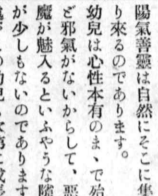 陽氣善靈は自然にそこに集
り來るのであります。
幼兒は心性本有のまゝで殆
ど邪氣がないからして、惡
魔が魅入るといふやうな隙
が少しもないのであります